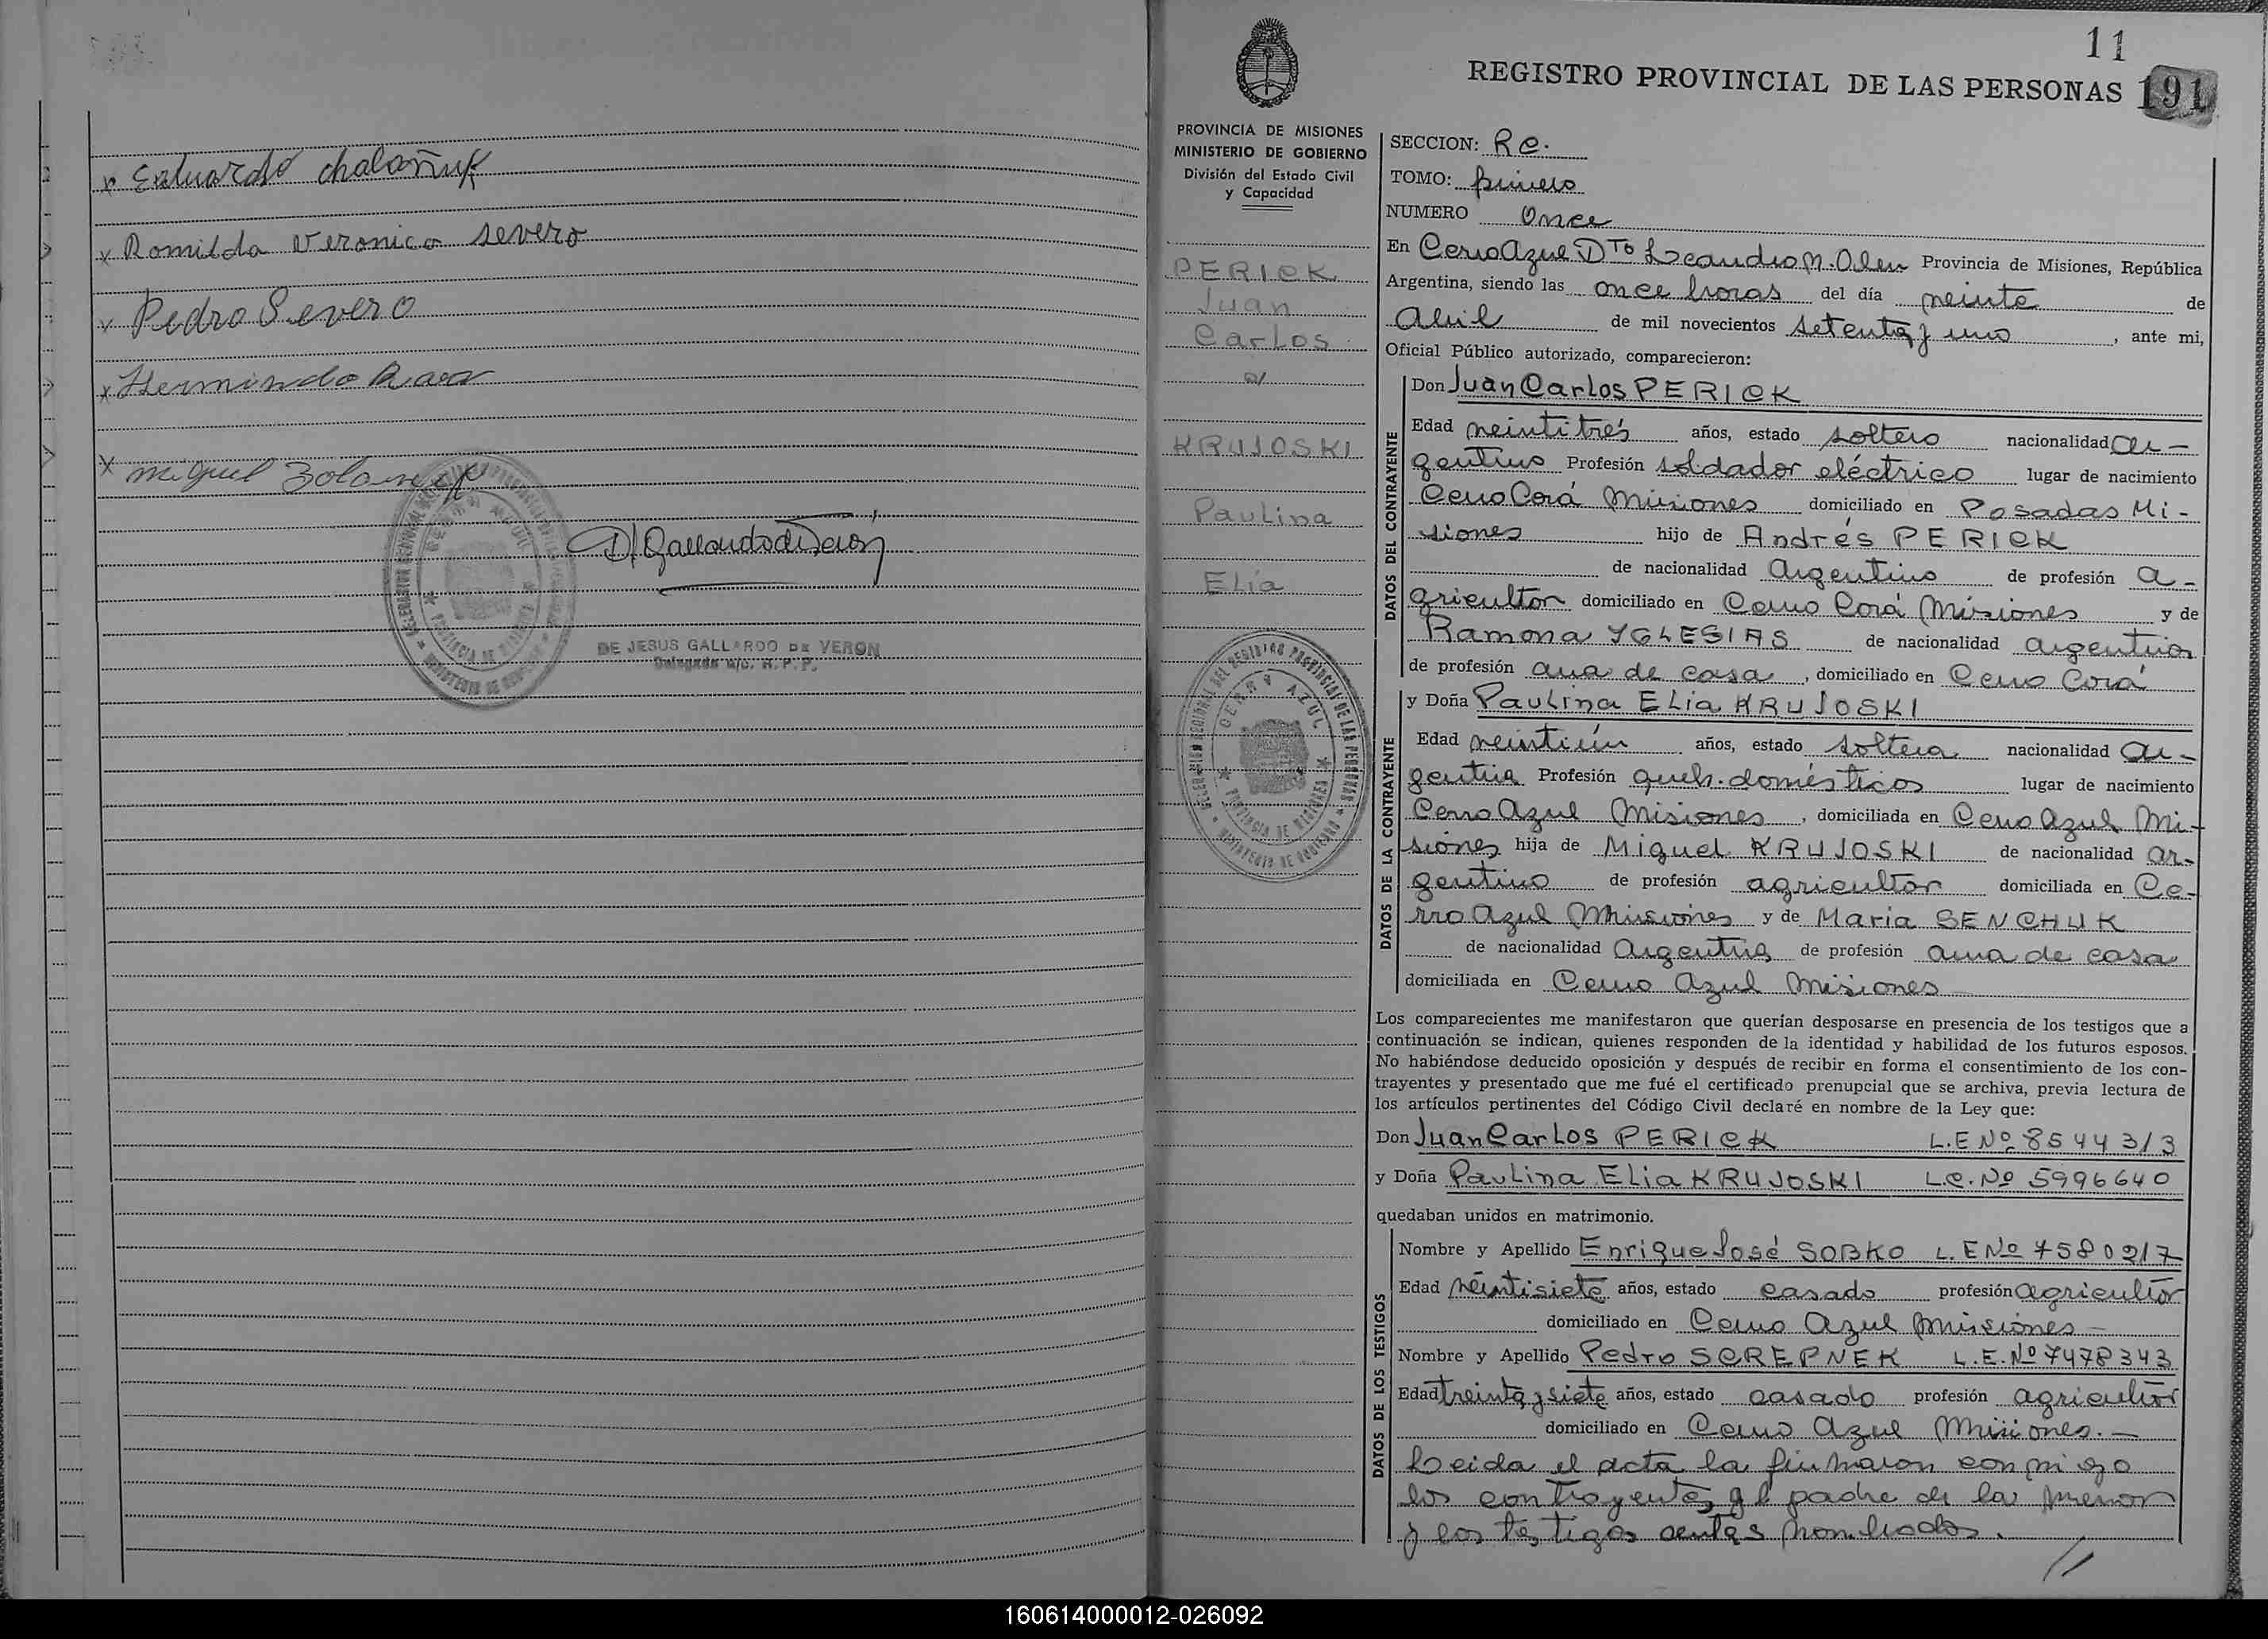 x Eduardo Chaloñuk
x Romilda Veronica Severo
x Pedro Severo
x Hermindo
x Miguel
DE JESUS GALLARDO DE VERON
Delegada R. P. P.
11
REGISTRO PROVINCIAL DE LAS PERSONAS 191
PROVINCIA DE MISIONES
MINISTERIO DE GOBIERNO
División del Estado Civil
y Capacidad
PERICK
Juan
Carlos
c/
KRUJOSKI
Paulina
Elia
SECCION: Re.
TOMO: primero
NUMERO Once
En Cerro Azul Dto Leandro N. Alem Provincia de Misiones, República
Argentina, siendo las once horas del día veinte de
Abril de mil novecientos setenta y uno, ante mi,
Oficial Público autorizado, comparecieron:
DATOS DEL CONTRAYENTE
Don Juan Carlos PERICK
Edad veintitrés años, estado soltero nacionalidad ar-
gentino Profesión soldador eléctrico lugar de nacimiento
Cerro Corá Misiones domiciliado en Posadas Mi-
siones hijo de Andrés PERICK
de nacionalidad Argentino de profesión a-
gricultor domiciliado en Cerro Corá Misiones y de
Ramona YGLESIAS de nacionalidad argentina
de profesión ama de casa, domiciliado en Cerro Corá
DATOS DE LA CONTRAYENTE
y Doña Paulina Elia KRUJOSKI
Edad veintiún años, estado soltera nacionalidad ar-
gentina Profesión queh. domésticos lugar de nacimiento
Cerro Azul Misiones, domiciliada en Cerro Azul Mi-
siones hija de Miguel KRUJOSKI de nacionalidad ar-
gentino de profesión agricultor domiciliada en Ce-
rro Azul Misiones y de Maria SENCHUK
de nacionalidad Argentina de profesión ama de casa
domiciliada en Cerro Azul Misiones
Los comparecientes me manifestaron que querían desposarse en presencia de los testigos que a
continuación se indican, quienes responden de la identidad y habilidad de los futuros esposos.
No habiéndose deducido oposición y después de recibir en forma el consentimiento de los con-
trayentes y presentado que me fué el certificado prenupcial que se archiva, previa lectura de
los artículos pertinentes del Código Civil declaré en nombre de la Ley que:
Don Juan Carlos PERICK L.E Nº 8544313
y Doña Paulina Elia KRUJOSKI L.C. Nº 5996640
quedaban unidos en matrimonio.
DATOS DE LOS TESTIGOS
Nombre y Apellido Enrique José SOBKO L.E Nº 7580217
Edad veintisiete años, estado casado profesión agricultor
domiciliado en Cerro Azul Misiones
Nombre y Apellido Pedro SCREPNEK L.E. Nº 7478343
Edad treinta y siete años, estado casado profesión agricultor
domiciliado en Cerro Azul Misiones.
Leida el acta la firmaron conmigo
los contrayentes, el padre de la menor
y los testigos antes nombrados.
//
160614000012-026092